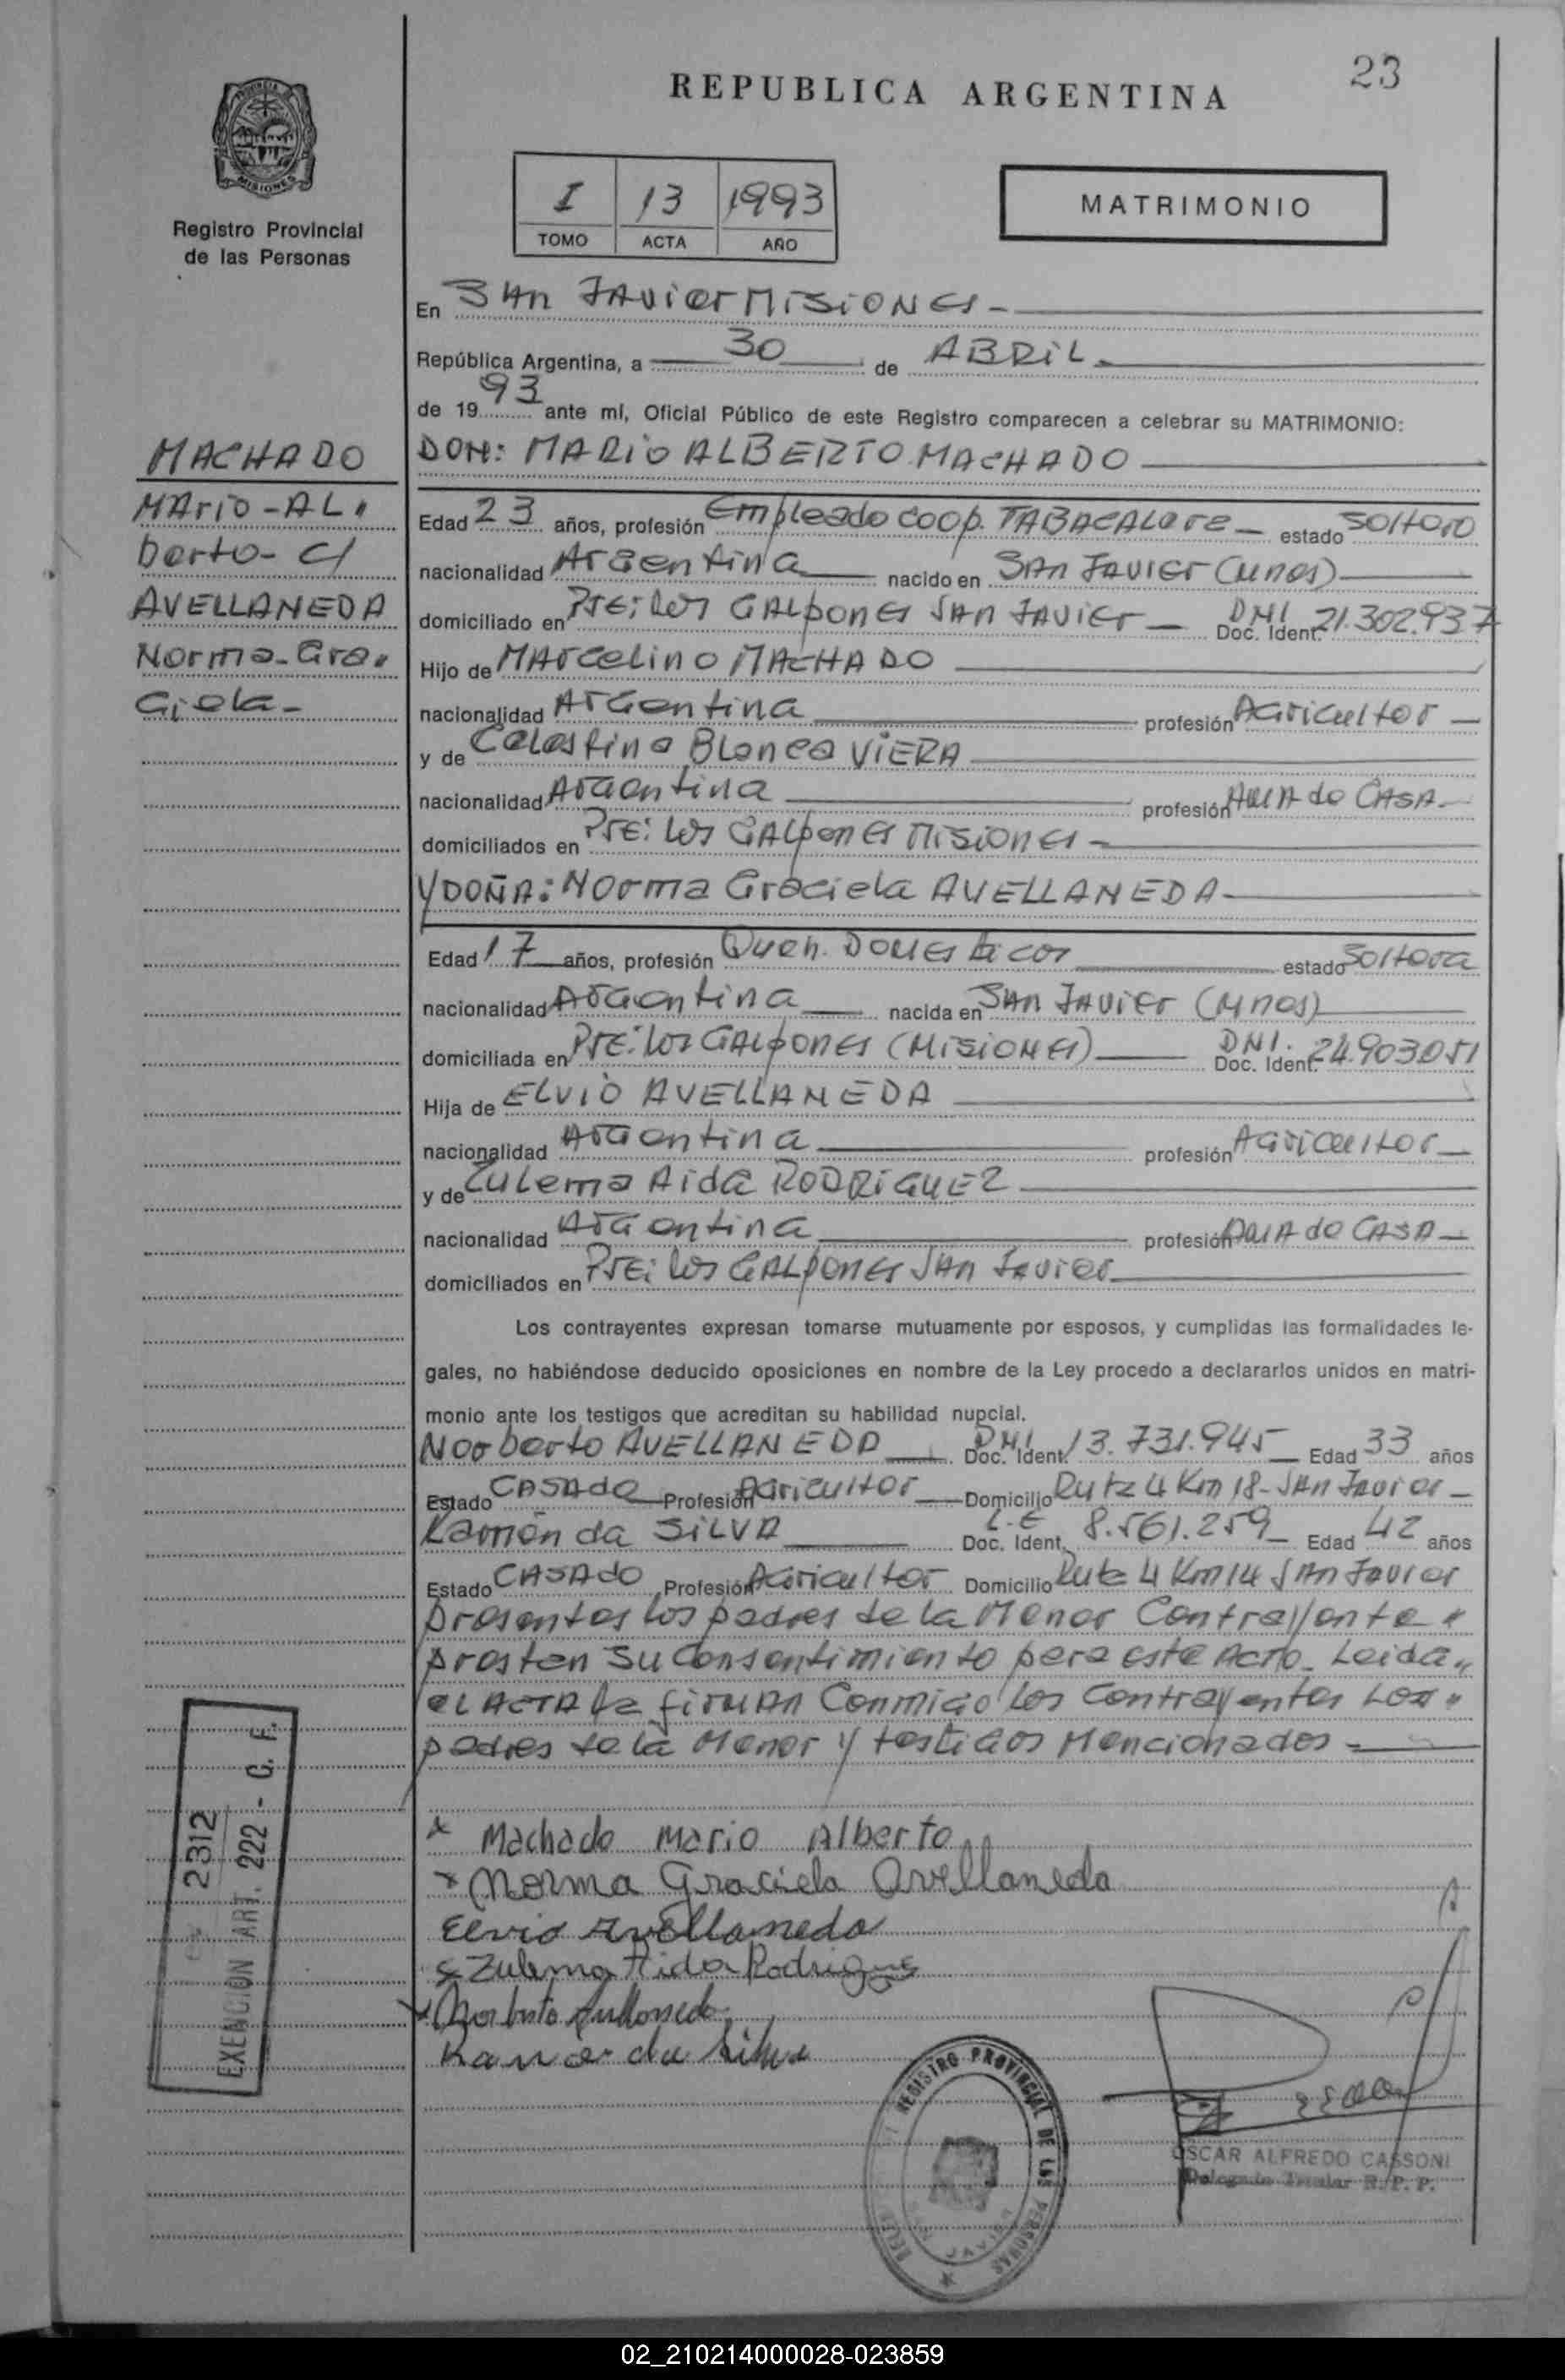 23
REPUBLICA ARGENTINA
PROVINCIA DE MISIONES
Registro Provincial
de las Personas
I 13 1993
TOMO ACTA AÑO
MATRIMONIO
En SAn JAvier MISIONES -
República Argentina, a 30 de ABRIL
de 1993 ante mí, Oficial Público de este Registro comparecen a celebrar su MATRIMONIO:
MACHADO
MArio-AL
berto- c/
AVELLANEDA
Norma-Gra
Ciela-
DON: MARIO ALBERTO MACHADO
Edad 23 años, profesión Empleado coop. TABACALera - estado soltero
nacionalidad Argentina nacido en SAn JAVIER (Mnes)
domiciliado en Pje: Los GALpones SAn JAVIer - DNI Doc. Ident. 21.302.937
Hijo de MArcelino MACHADO
nacionalidad Argentina profesión Agricultor
y de Celestina Blanca VIERA
nacionalidad Argentina profesión AMA de CASA
domiciliados en Pje: Los GALpones MISiones -
Y DOÑA: Norma Graciela AVELLANEDA
Edad 17 años, profesión Queh. Domesticos estado soltera
nacionalidad Argentina nacida en SAn JAVIer (Mnes)
domiciliada en Pje: Los GALpones (MISIONES) DNI. Doc. Ident. 24.903051
Hija de ELVIO AVELLANEDA
nacionalidad Argentina profesión Agricultor
y de Zulema Aida RODRIGUEZ
nacionalidad Argentina profesión AMA de CASA
domiciliados en Pje: Los GALpones SAn Javier
Los contrayentes expresan tomarse mutuamente por esposos, y cumplidas las formalidades le-
gales, no habiéndose deducido oposiciones en nombre de la Ley procedo a declararlos unidos en matri-
monio ante los testigos que acreditan su habilidad nupcial.
Norberto AVELLANEDA DNI Doc. Ident. 13.731.945 Edad 33 años
Estado CASADO Profesión Agricultor Domicilio Ruta 4 Km 18- SAn Javier
Ramón da SILVA L.E Doc. Ident. 8.561.259 Edad 42 años
Estado CASADO Profesión Agricultor Domicilio Ruta 4 Km 14 SAn Javier
presentes los padres de la Menor Contrayente
prestan su Consentimiento para este Acto. Leida
el ACTA la firman Conmigo los Contrayentes Los
padres de la Menor y testigos Mencionados -
x Machado mario Alberto
x Norma Graciela Avellaneda
Elvio Avellaneda
Zulema Aida Rodrigues
x Norberto Avellaneda
Ramon da Silva
2312
EXENCION ART. 222 - C. F.
REGISTRO PROVINCIAL DE LAS PERSONAS
SAN JAVIER
OSCAR ALFREDO CASSONI
Delegado Titular R. P. P.
02_210214000028-023859